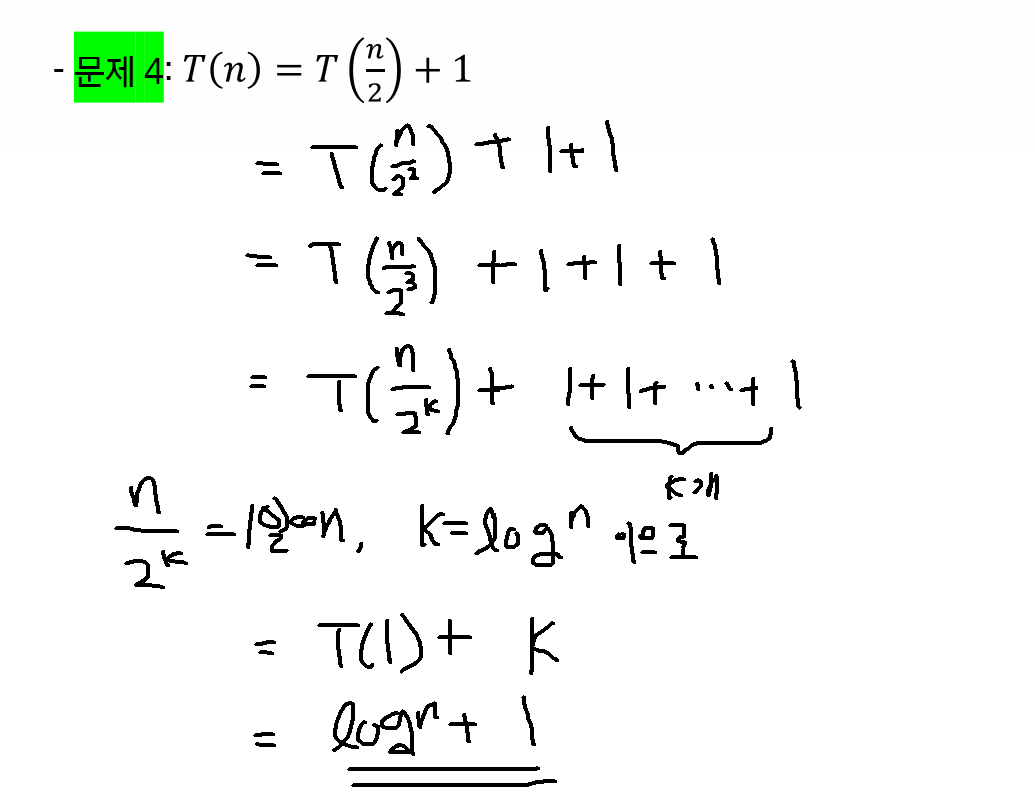 - 문제 4: T(n) = T(n/2) + 1
= T(n/2²) + 1 + 1
= T(n/2³) + 1 + 1 + 1
= T(n/2ᵏ) + 1 + 1 + ... + 1
K개
n/2ᵏ = 1 일 때 2ᵏ = n, K = log n 이므로
= T(1) + K
= log n + 1